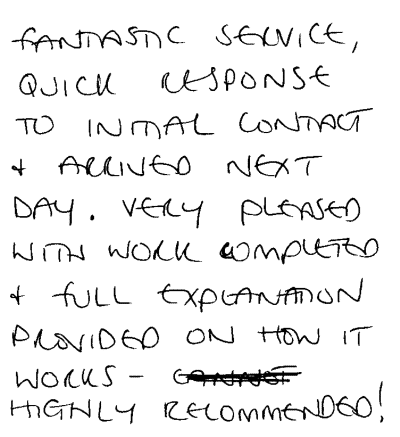 FANTASTIC SERVICE,
QUICK RESPONSE
TO INITIAL CONTACT
+ ARRIVED NEXT
DAY. VERY PLEASED
WITH WORK COMPLETED
+ FULL EXPLANATION
PROVIDED ON HOW IT
WORKS -
HIGHLY RECOMMENDED!